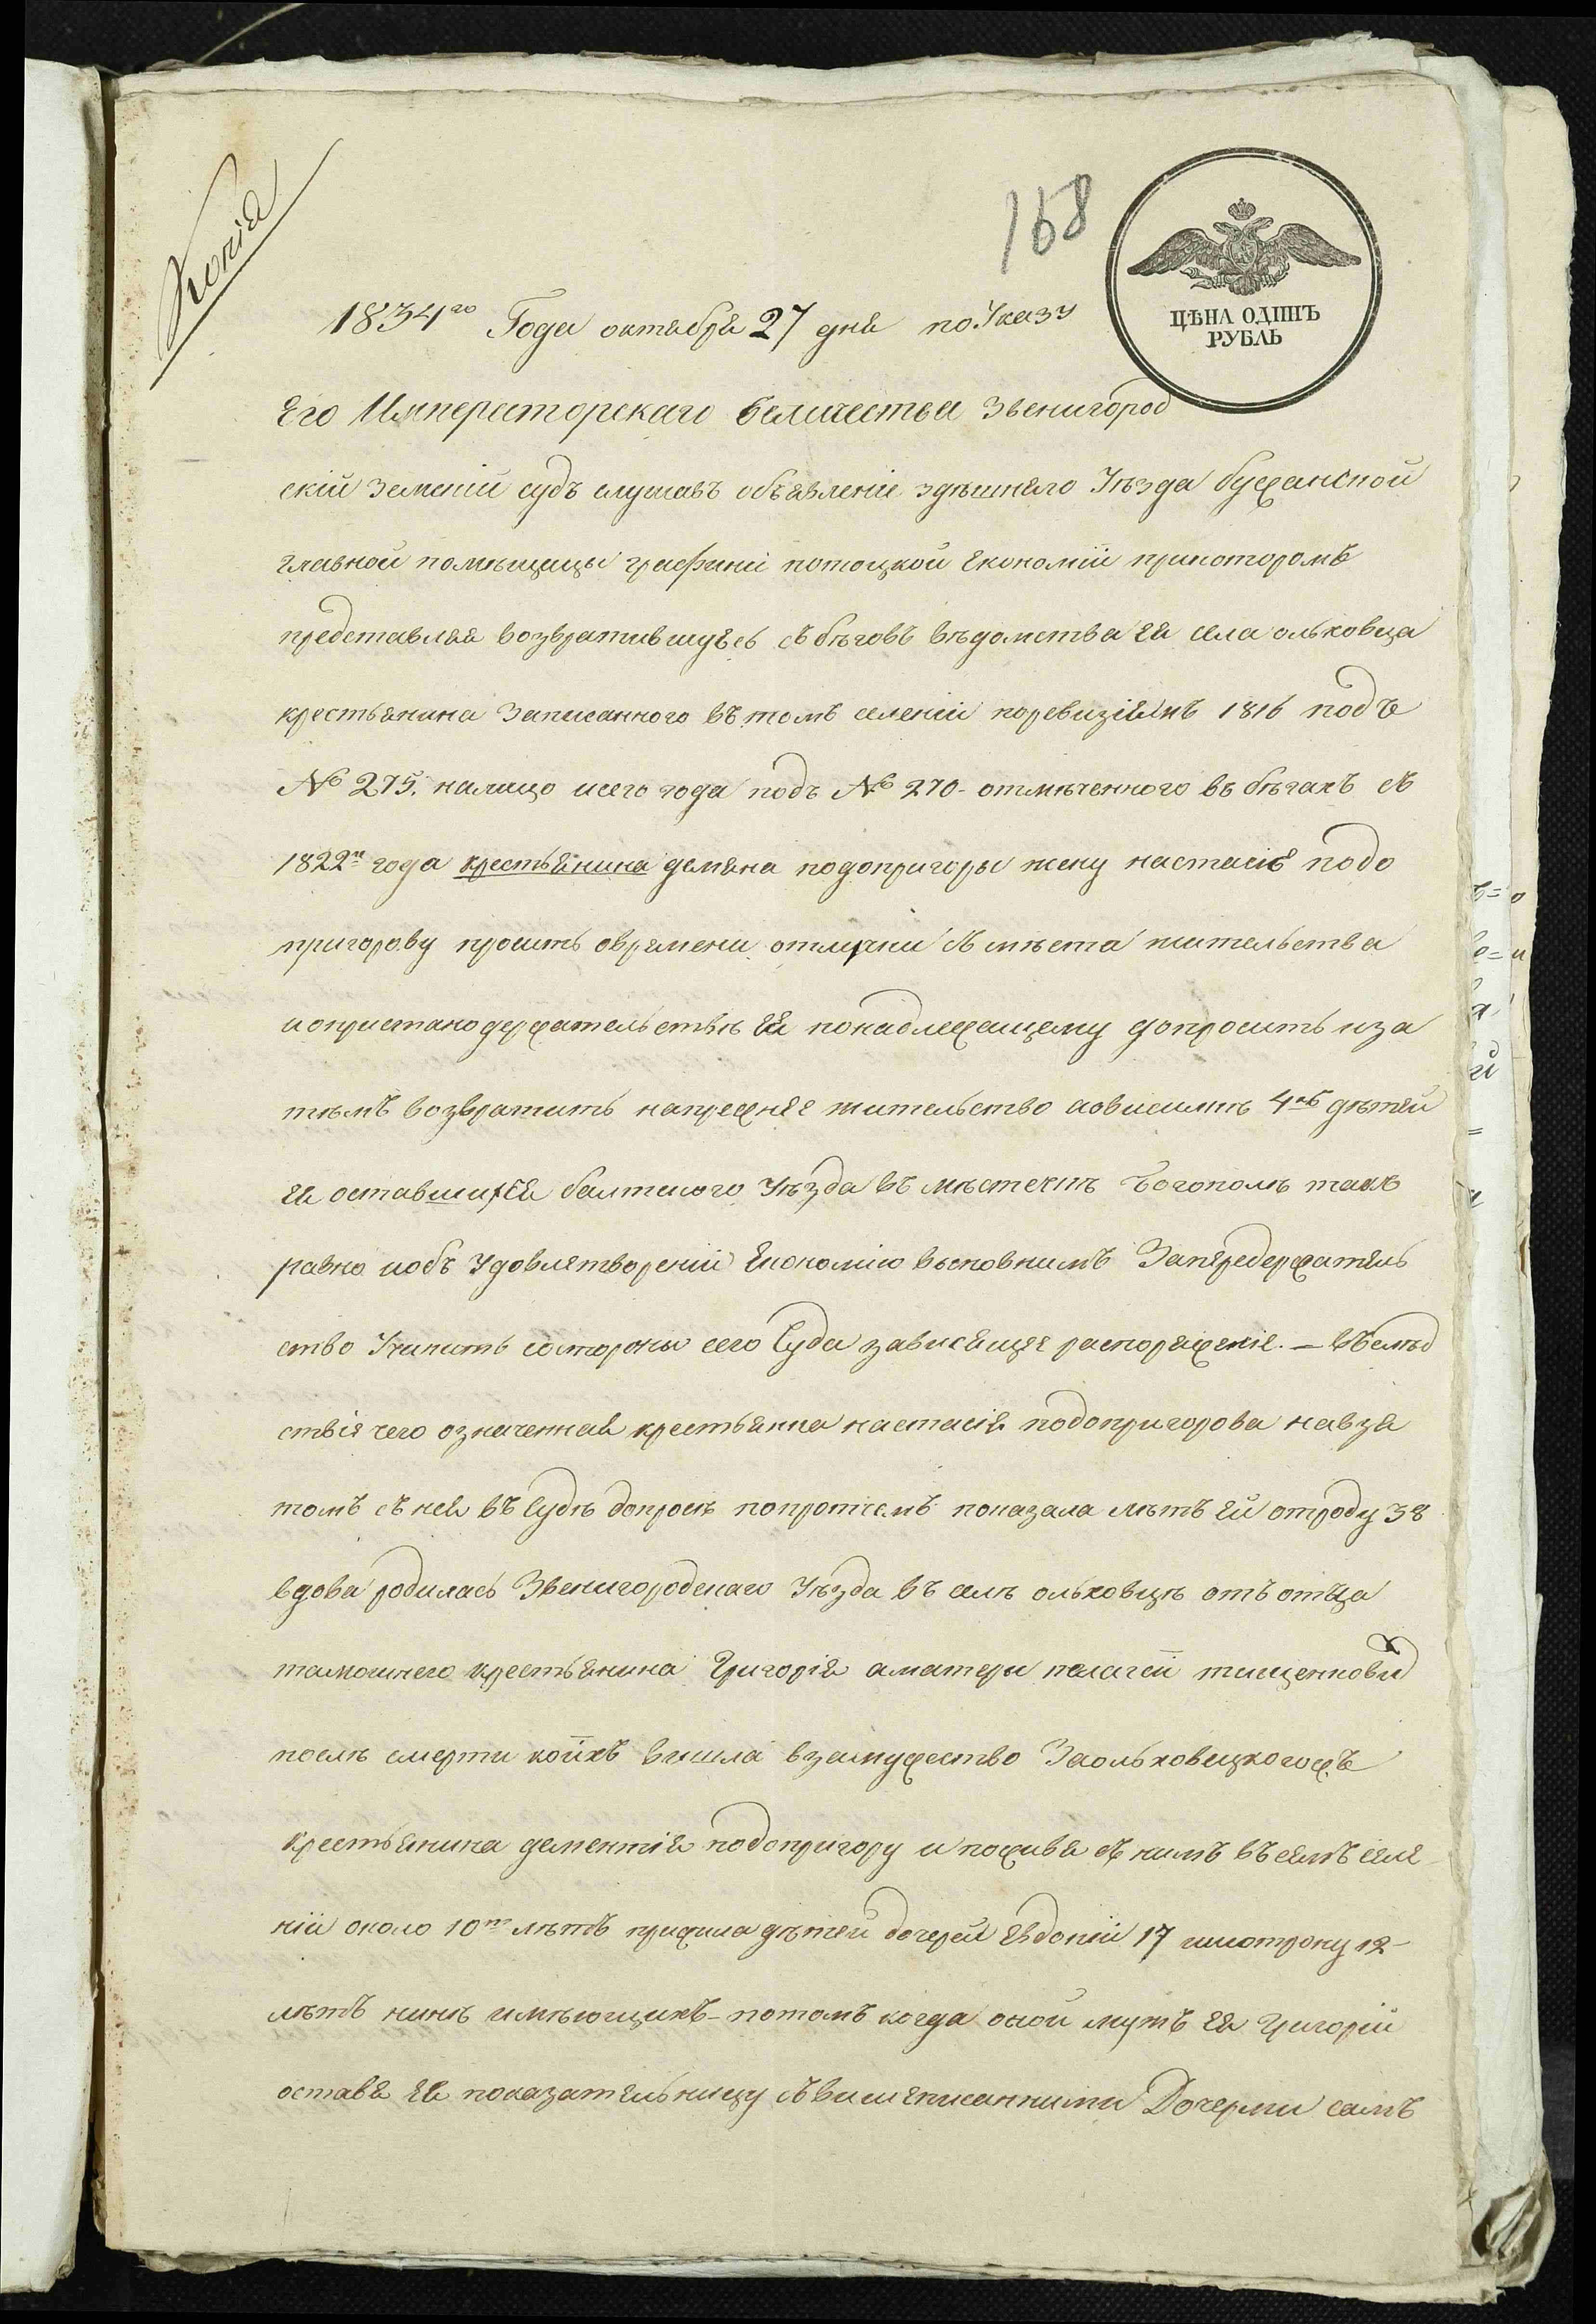 Копія
168
ЦѢНА ОДИНЪ
РУБЛЬ
1834го Года октября 27 дня по Указу
Его Императорскаго Величества Звенигород
скій Земскій судъ слушавъ объявленіе здѣшняго Уѣзда бужанской
главной помѣщицы графини потоцкой Економіи прикоторомъ
представляя возвратившуюсь съ бѣговъ вѣдомства ея села ольховца
крестьянина Записанного въ томъ селеніи поревизіямъ 1816 подъ
№ 275. налицо исего года подъ № 270 - отмѣченного въ бѣгахъ съ
1822го года крестьянина демяна подопригоры жену настасію подо
пригорову просить овремени отлучки съ мѣста жительства
иопристанодержательствѣ ея понадлежащему допросить иза
тѣмъ возвратить напрежнее жительство аовисилкѣ 4хъ дѣтей
ея оставшихся балтского Уѣзда въ мѣстечкѣ Богополѣ такъ
равно иобъ Удовлетвореніи Економію въсповнимъ Запередержатель
ство Учинить состороны сего Суда зависящее распоряженіе. — Въслѣд
ствіе чего означенная крестьянка настасія подопригорова навзя
томъ съ нея въ Судѣ допросѣ попротчемъ показала лѣтъ ей отроду 38
вдова родилась Звенигородскаго Уѣзда въ селѣ ольховцѣ отъ отца
тамошнего крестьянина Григорія аматери пелагеи тищенковихъ
послѣ смерти коихъ вишла взамужество Заольховецкогожъ
крестьянина дементія подопригору и поживя съ нимъ въ семъ селе
ніи около 10ти лѣтъ прижила дѣтей дочерей Евдокіи 17 имотрону 12 -
лѣтъ нинѣ имѣющихъ - потомъ когда оной мужъ ея Григорій
оставя ея показательницу съ вишеписанними Дочерми самъ